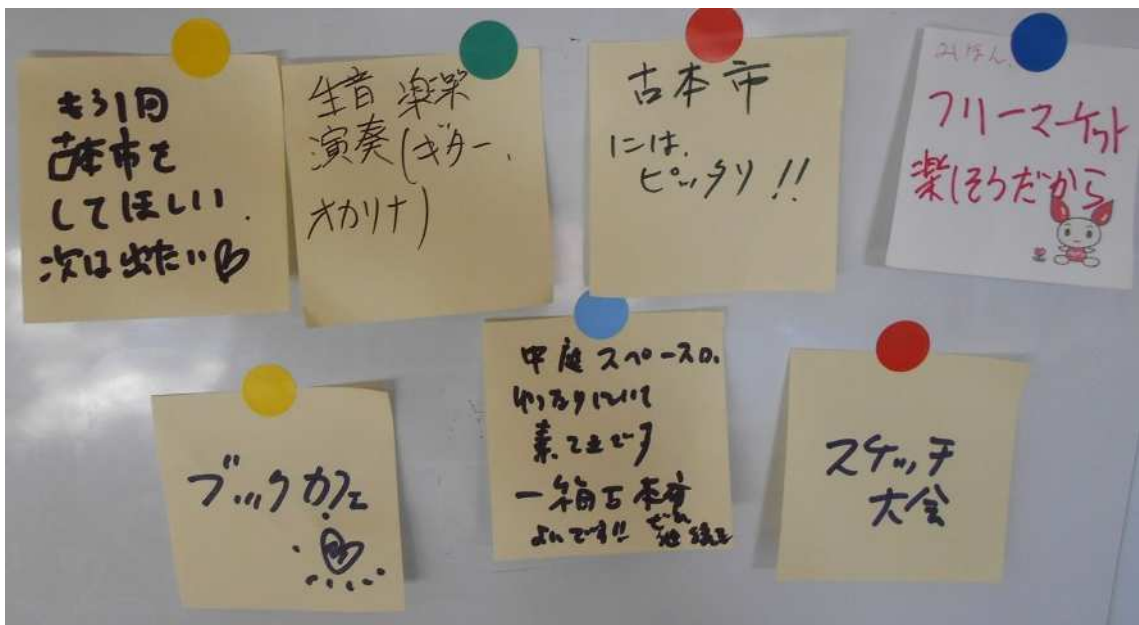 もう1回
古本市を
してほしい.
次は出たい♡
生音 楽器
演奏(ギター、
オカリナ)
古本市
には、
ピッタリ!!
フリーマーケット
楽しそうだから
ブックカフェ
中庭スペースの、
素てきです
一箱古本市
よいです!! ぜひ継続を
スケッチ
大会